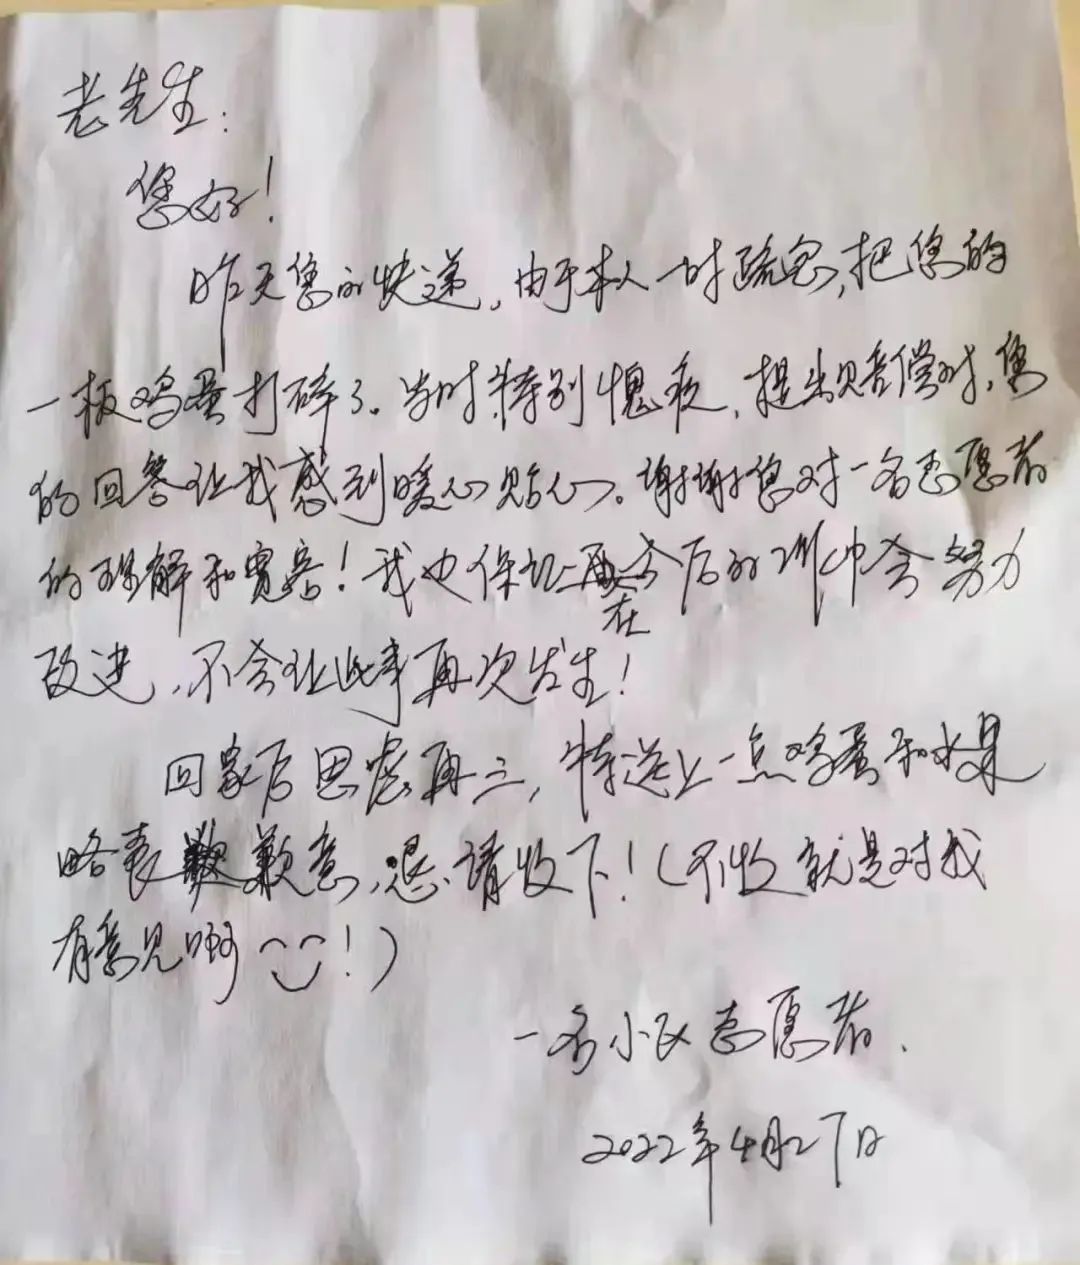 老先生：
您好！
昨天您的快递，由于本人一时疏忽，把您的
一板鸡蛋打碎了。当时特别愧疚，提出赔偿时，您
的回答让我感到暖心贴心。谢谢您对一名志愿者
的理解和宽容！我也保证在今后的工作中会努力
改进，不会让此事再次发生！
回家后思虑再三，特送上一点鸡蛋和水果
略表歉意，恳请收下！（不收就是对我
有意见啊！）
一名小区志愿者.
2022年4月27日